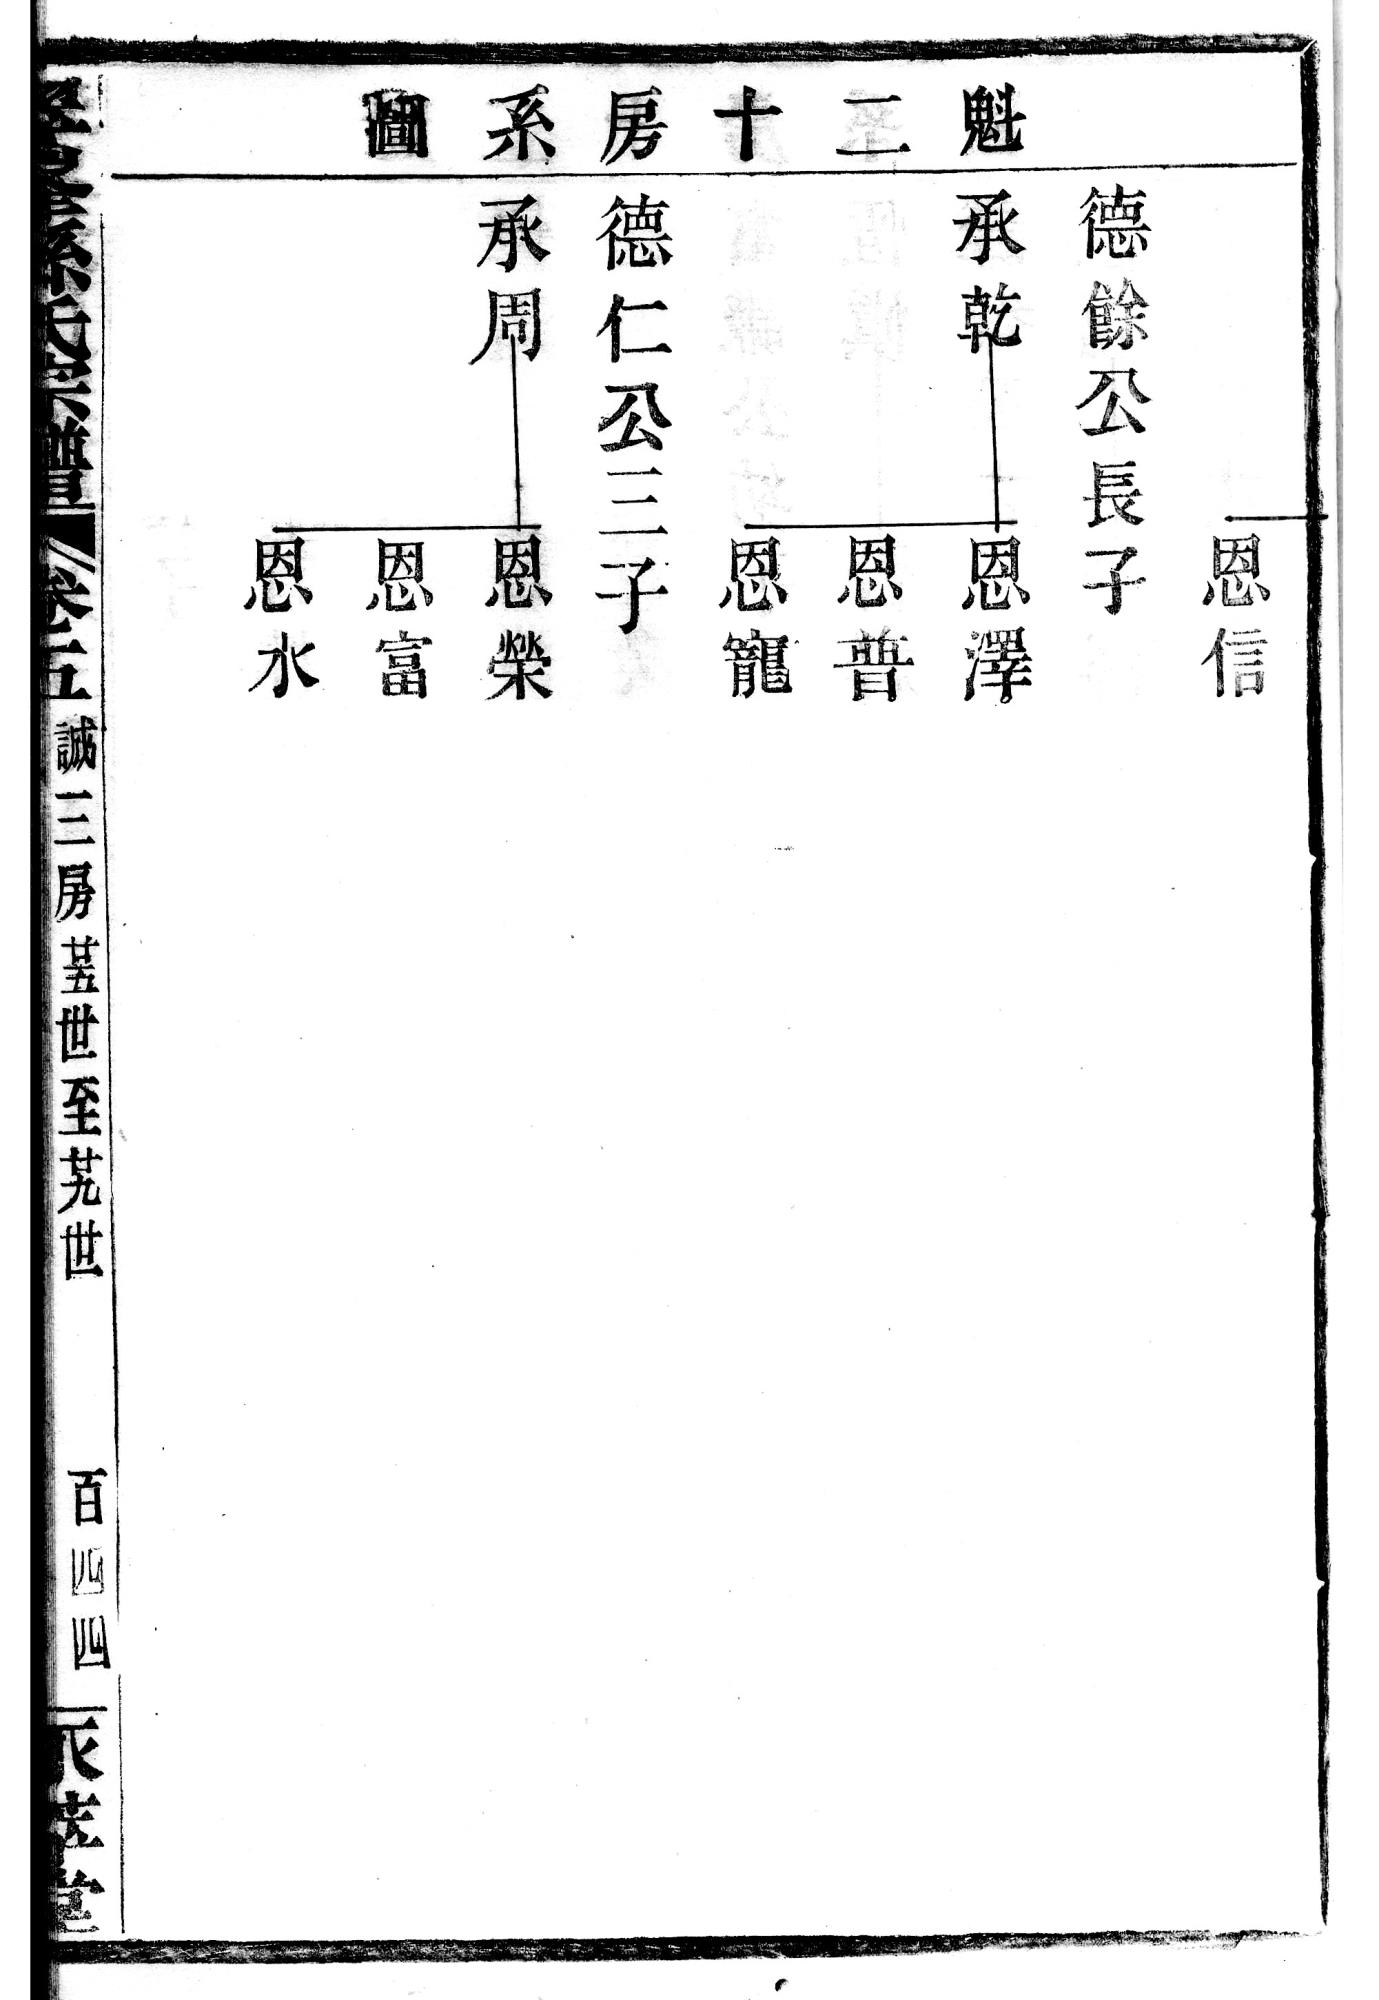 魁二十房系圖
恩信
德餘公長子
承乾
恩澤
恩普
恩寵
德仁公三子
承周
恩榮
恩富
恩水
孫氏宗譜
卷五
誠三房 廿五世至廿九世
百四四
堂